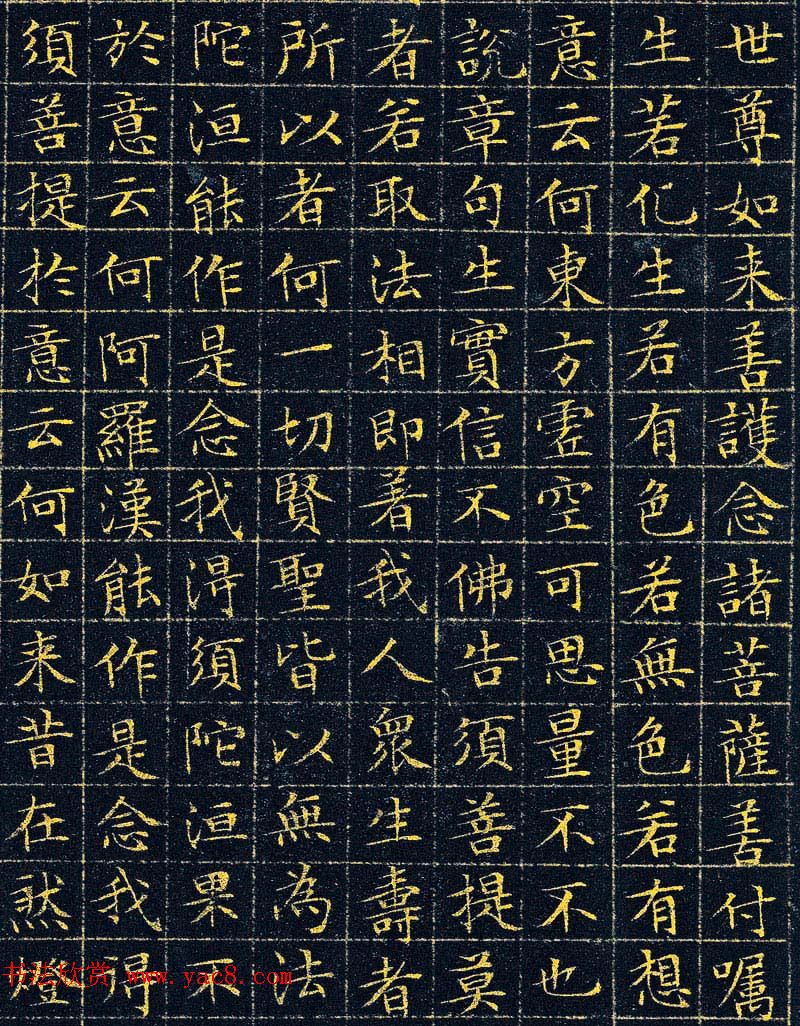 世尊如来善護念諸菩薩善付嘱
生若化生若有色若無色若有想
意云何東方虛空可思量不不也
說章句生實信不佛告須善提莫
者若取法相即著我人衆生壽者
所以者何一切賢聖皆以無為法
陀洹能作是念我得須陀洹果不
於意云何阿羅漢能作是念我得
須善提於意云何如来昔在然燈
书法欣赏 www.yac8.com